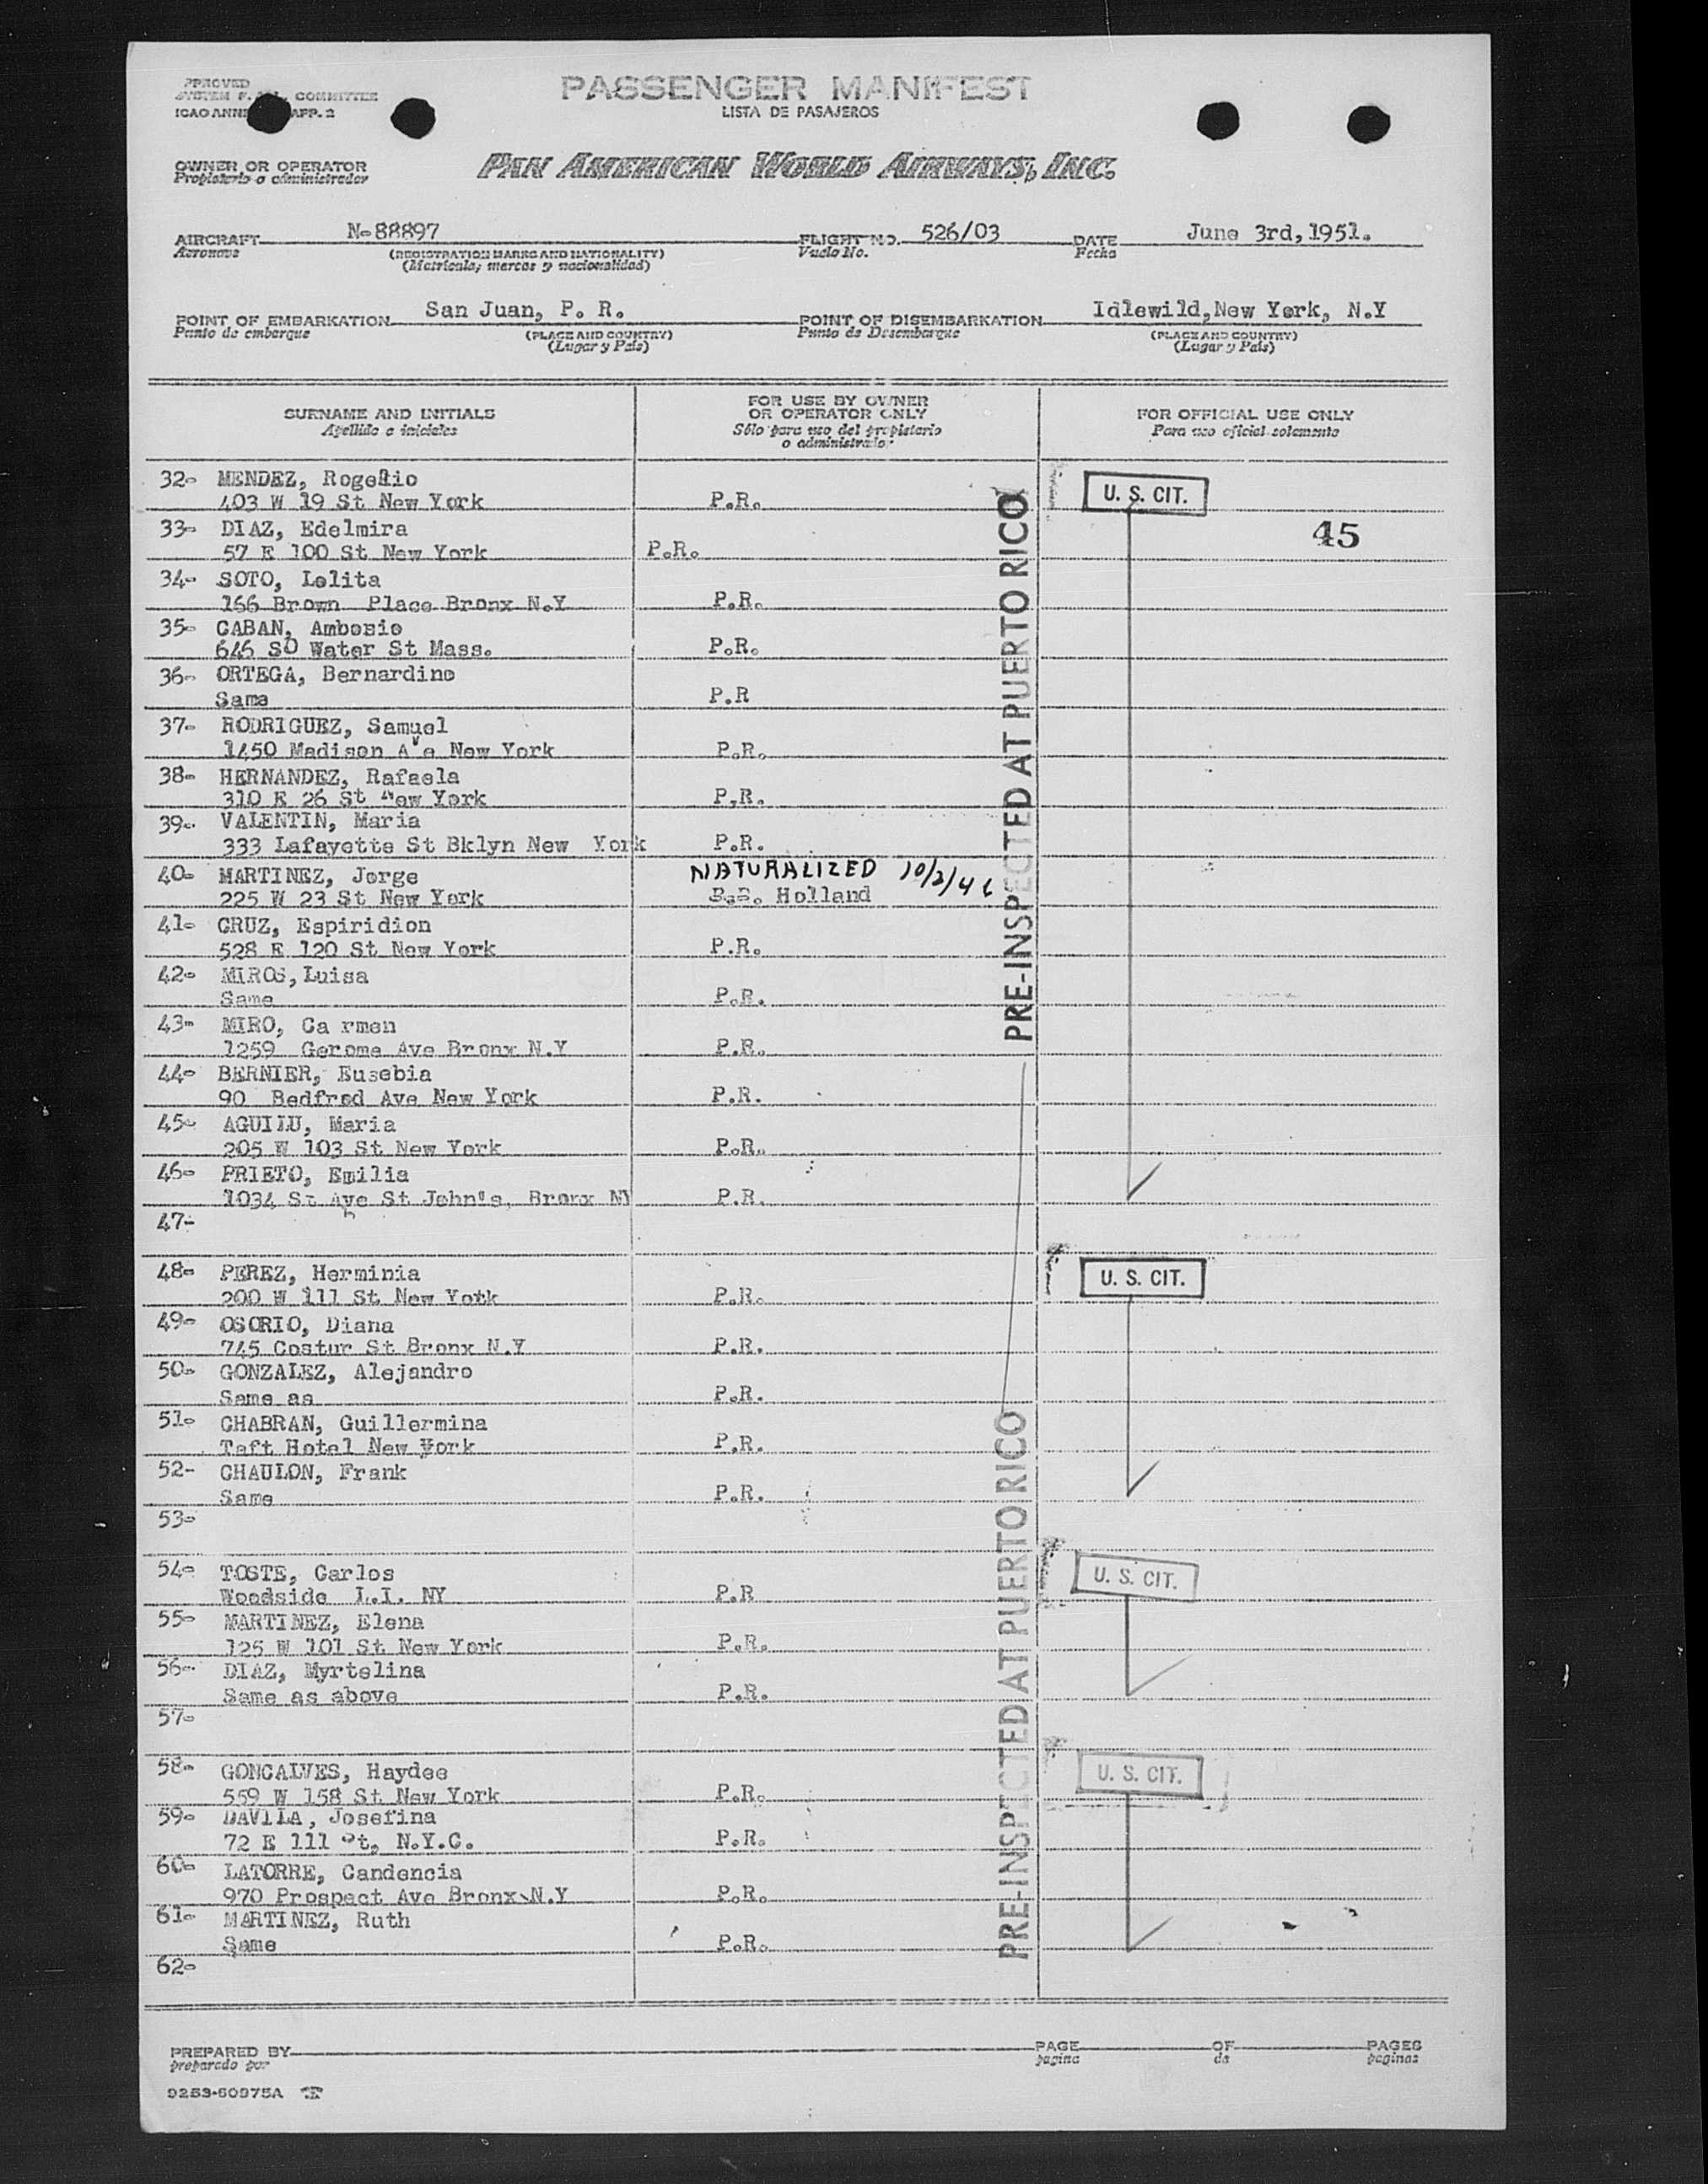 APPROVED
SYSTEM F. COMMITTEE
ICAO ANNEX APP. 2
PASSENGER MANIFEST
LISTA DE PASAJEROS
OWNER OR OPERATOR
Propietario o administrador
PAN AMERICAN WORLD AIRWAYS, INC.
AIRCRAFT N-88897 FLIGHT NO. 526/03 DATE June 3rd, 1951.
Aeronave (REGISTRATION MARKS AND NATIONALITY) Vuelo No. Fecha
(Matricula, marcas y nacionalidad)
POINT OF EMBARKATION San Juan, P. R. POINT OF DISEMBARKATION Idlewild, New York, N.Y
Punto de embarque (PLACE AND COUNTRY) Punto de Desembarque (PLACE AND COUNTRY)
(Lugar y País) (Lugar y País)
SURNAME AND INITIALS
Apellido e iniciales
FOR USE BY OWNER
OR OPERATOR ONLY
Sólo para uso del propietario
o administrador
FOR OFFICIAL USE ONLY
Para uso oficial solamente
32- MENDEZ, Rogelio
403 W 19 St New York P.R. U. S. CIT.
33- DIAZ, Edelmira 45
57 E 100 St New York P.R.
34- SOTO, Lolita
166 Brown Place Bronx N.Y P.R.
35- CABAN, Ambosio
646 SO Water St Mass. P.R.
36- ORTEGA, Bernardino
Same P.R
37- RODRIGUEZ, Samuel
1450 Madison Ave New York P.R.
38- HERNANDEZ, Rafaela
310 E 26 St New York P.R.
39- VALENTIN, Maria
333 Lafayette St Bklyn New York P.R.
40- MARTINEZ, Jorge NATURALIZED 10/2/46
225 W 23 St New York Holland
41- CRUZ, Espiridion
528 E 120 St New York P.R.
42- MIROS, Luisa
Same P.R.
43- MIRO, Ca rmen
1259 Gerome Ave Bronx N.Y P.R.
44- BERNIER, Eusebia
90 Bedfrod Ave New York P.R.
45- AGUILU, Maria
205 W 103 St New York P.R.
46- PRIETO, Emilia
1034 St Ave St John's, Bronx NY P.R.
47-
PRE-INSPECTED AT PUERTO RICO
48- PEREZ, Herminia U. S. CIT.
200 W 111 St New York P.R.
49- OSORIO, Diana
745 Costur St Bronx N.Y P.R.
50- GONZALEZ, Alejandro
Same as P.R.
51- CHABRAN, Guillermina
Taft Hotel New York P.R.
52- CHAULON, Frank
Same P.R.
53-
54- TOSTE, Carlos U. S. CIT.
Woodside L.I. NY P.R
55- MARTINEZ, Elena
125 W 101 St New York P.R.
56- DIAZ, Myrtelina
Same as above P.R.
57-
58- GONCALVES, Haydee U. S. CIT.
559 W 158 St New York P.R.
59- DAVILA, Josefina
72 E 111 St, N.Y.C. P.R.
60- LATORRE, Candencia
970 Prospect Ave Bronx N.Y P.R.
61- MARTINEZ, Ruth
Same P.R.
62-
PRE-INSPECTED AT PUERTO RICO
PREPARED BY PAGE OF PAGES
preparado por pagina de paginas
9253-50975A